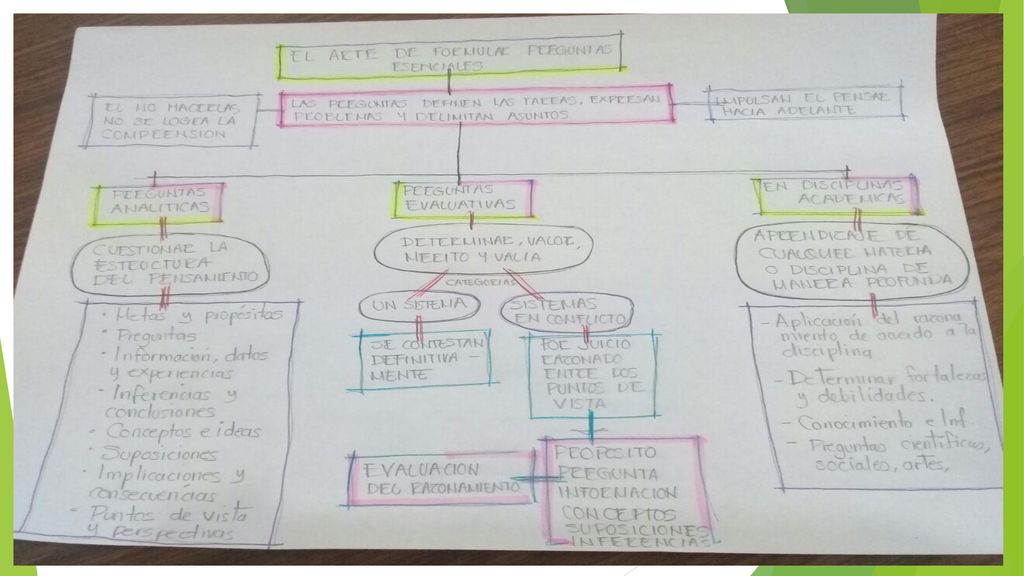 EL ARTE DE FORMULAR PREGUNTAS
ESENCIALES
EL NO HACERLAS
NO SE LOGRA LA
COMPRENSIÓN
LAS PREGUNTAS DEFINEN LAS TAREAS, EXPRESAN
PROBLEMAS Y DELIMITAN ASUNTOS
IMPULSAN EL PENSAR
HACIA ADELANTE
PREGUNTAS
ANALITICAS
PREGUNTAS
EVALUATIVAS
EN DISCIPLINAS
ACADEMICAS
CUESTIONAR LA
ESTRUCTURA
DEL PENSAMIENTO
DETERMINAR, VALOR,
MERITO Y VALIA
APRENDIZAJE DE
CUALQUIER MATERIA
O DISCIPLINA DE
MANERA PROFUNDA
CATEGORIAS
UN SISTEMA
SISTEMAS
EN CONFLICTO
• Metas y propósitos
• Preguntas
• Información, datos
y experiencias
• Inferencias y
conclusiones
• Conceptos e ideas
• Suposiciones
• Implicaciones y
consecuencias
• Puntos de vista
y perspectivas
SE CONTESTAN
DEFINITIVA-
MENTE
POR JUICIO
RAZONADO
ENTRE LOS
PUNTOS DE
VISTA
- Aplicación del razona
miento de aucido a la
disciplina
- Determinar fortalezas
y debilidades.
- Conocimiento e Inf.
- Preguntas científicas,
sociales, artes,
EVALUACION
DEL RAZONAMIENTO
PROPOSITO
PREGUNTA
INFORMACION
CONCEPTOS
SUPOSICIONES
INFERENCIAS